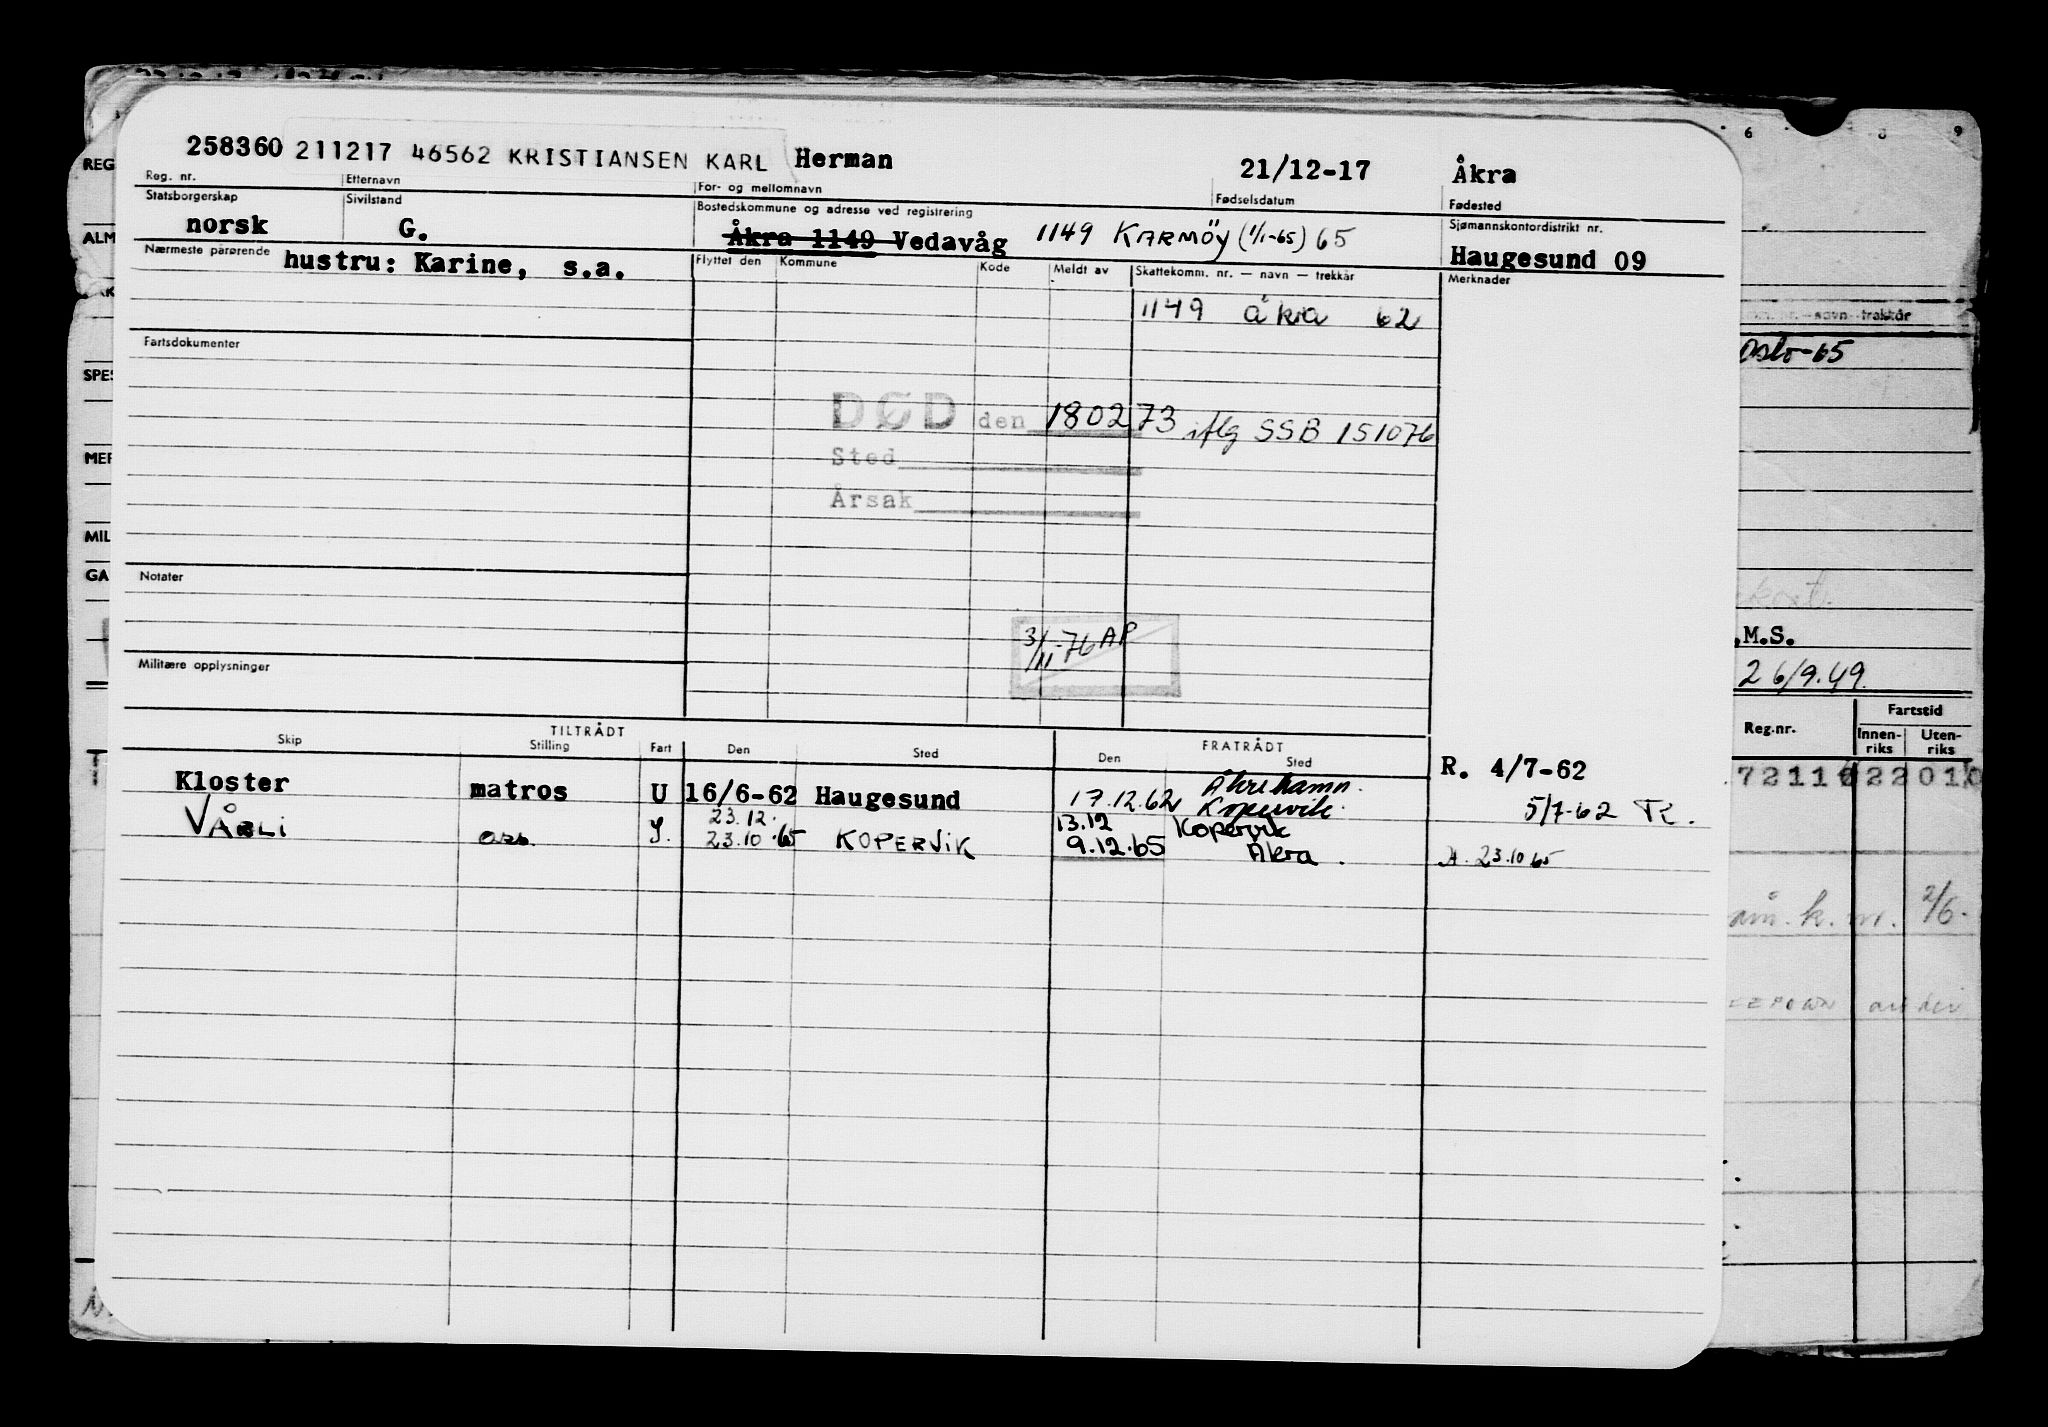 258360 211217 46562 KRISTIANSEN KARL Herman 21/12-17 Åkra
Reg. nr. Etternavn For- og mellomnavn Fødselsdatum Fødested
Statsborgerskap Sivilstand Bostedskommune og adresse ved registrering Sjømannskontordistrikt nr.
norsk G. Åkra 1149 Vedavåg 1149 KARMÖY (1/1-65) 65 Haugesund 09
Nærmeste pårørende hustru: Karine, s.a. Flyttet den Kommune Kode Meldt av Skattekomm. nr. — navn — trekkår Merknader
1149 åkra 62
Fartsdokumenter
DØD den 180273 iflg SSB 151076
Sted
Årsak
Notater
3/11-76 AP
Militære opplysninger
TILTRÅDT FRATRÅDT
Skip Stilling Fart Den Sted Den Sted
R. 4/7-62
Kloster matros U 16/6-62 Haugesund 17.12.62 Åkrehamn.
Kopervik.
5/7-62
VÅRLI 23.12. 13.12 Kopervik
23.10.65 KOPERVIK 9.12.65 Åkra. 23.10 65
REG
ALM
SPES
MER
MIL
GA
6 8 9
nr. — navn — trekkår
Oslo-65
.M.S.
26/9.49.
Reg.nr. Fartstid
Innen-riks Uten-riks
k. m. 2/6.